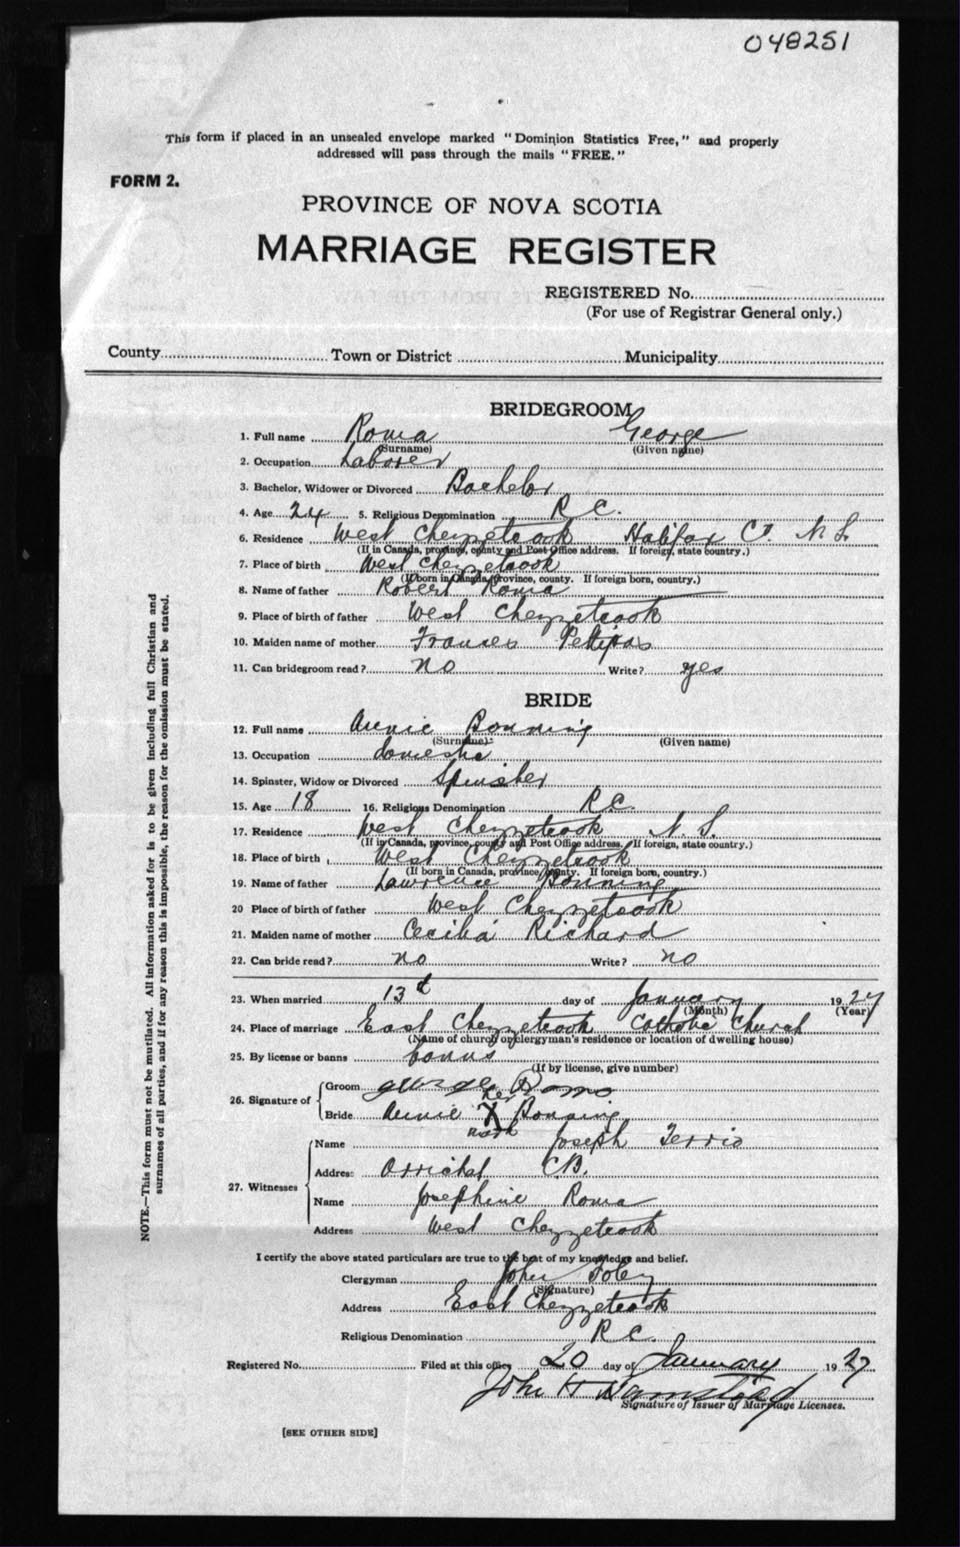 048251
This form if placed in an unsealed envelope marked "Dominion Statistics Free," and properly
addressed will pass through the mails "FREE."
FORM 2.
PROVINCE OF NOVA SCOTIA
MARRIAGE REGISTER
REGISTERED No.
(For use of Registrar General only.)
County Town or District Municipality
BRIDEGROOM
1. Full name Roma George
(Surname) (Given name)
2. Occupation Laborer
3. Bachelor, Widower or Divorced Bachelor
4. Age 24 5. Religious Denomination R C.
6. Residence West Chezzetcook Halifax Co. N S.
(If in Canada, province, county and Post Office address. If foreign, state country.)
7. Place of birth West Chezzetcook
(If born in Canada, province, county. If foreign born, country.)
8. Name of father Robert Roma
9. Place of birth of father West Chezzetcook
10. Maiden name of mother Frances Petipas
11. Can bridegroom read? no Write? yes
BRIDE
12. Full name Annie Bonning
(Surname) (Given name)
13. Occupation domestic
14. Spinster, Widow or Divorced Spinster
15. Age 18 16. Religious Denomination R.C.
17. Residence West Chezzetcook N. S.
(If in Canada, province, county and Post Office address. If foreign, state country.)
18. Place of birth West Chezzetcook
(If born in Canada, province, county. If foreign born, country.)
19. Name of father Lawrence Bonning
20 Place of birth of father West Chezzetcook
21. Maiden name of mother Cecilia Richard
22. Can bride read? no Write? no
23. When married 13th day of January 1927
(Month) (Year)
24. Place of marriage East Chezzetcook Catholic Church
(Name of church or clergyman's residence or location of dwelling house)
25. By license or banns banns
(If by license, give number)
26. Signature of
Groom George Romo
her
Bride Annie X Bonning
mark
27. Witnesses
Name Joseph Terrio
Address Arichat C.B.
Name Josephine Roma
Address West Chezzetcook
I certify the above stated particulars are true to the best of my knowledge and belief.
Clergyman John Foley
(Signature)
Address East Chezzetcook
Religious Denomination R C.
Registered No. Filed at this office 20 day of January 1927
John H
Signature of Issuer of Marriage Licenses.
[SEE OTHER SIDE]
NOTE.—This form must not be mutilated. All information asked for is to be given including full Christian and
surnames of all parties, and if for any reason this is impossible, the reason for the omission must be stated.